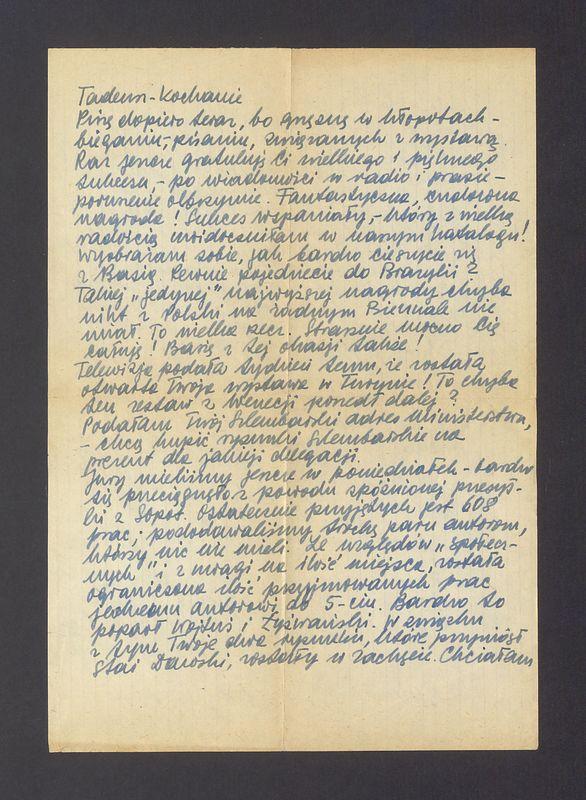 Tadeusz-Kochanie
Piszę dopiero teraz, bo grzęznę w kłopotach-
bieganiu,- pisaniu, związanych z wystawą.
Raz jeszcze gratuluję Ci wielkiego i pięknego
sukcesu,- po wiadomości w radio i prasie-
poruszenie olbrzymie. Fantastyczna, cudowna
nagroda! Sukces wspaniały,- który z wielką
radością uwidoczniłam w naszym katalogu!
Wyobrażam sobie, jak bardzo cieszycie się
z Basią. Pewnie pojedziecie do Brazylii?
Takiej „jedynej" najwyższej nagrody chyba
nikt z Polski na żadnym Biennale nie
miał. To wielka rzecz. Strasznie mocno Cię
całuję! Basię z tej okazji także!
Telewizja podała tydzień temu, że została
otwarta Twoja wystawa w Turynie! To chyba
ten zestaw z Wenecji poszedł dalej?
Podałam Twój Szlembarski adres Ministerstwu,
- chcą kupić rysunki Szlembarskie na
prezent dla jakiejś delegacji.
Jury mieliśmy jeszcze w poniedziałek - bardzo
się przeciągnęło z powodu spóźnionej przesył-
ki z Sopot. Ostatecznie przyjętych jest 608
prac, pododawaliśmy trochę paru autorom,
którzy nic nie mieli. Ze względów „społecz-
nych" i z uwagi na ilość miejsca, została
ograniczona ilość przyjmowanych prac
jednemu autorowi do 5-ciu. Bardzo to
poparł Wejman i Żyświański. W związku
z tym Twoje dwa rysunki, które przyniósł
Staś Dawski, zostały w Zachęcie. Chciałam